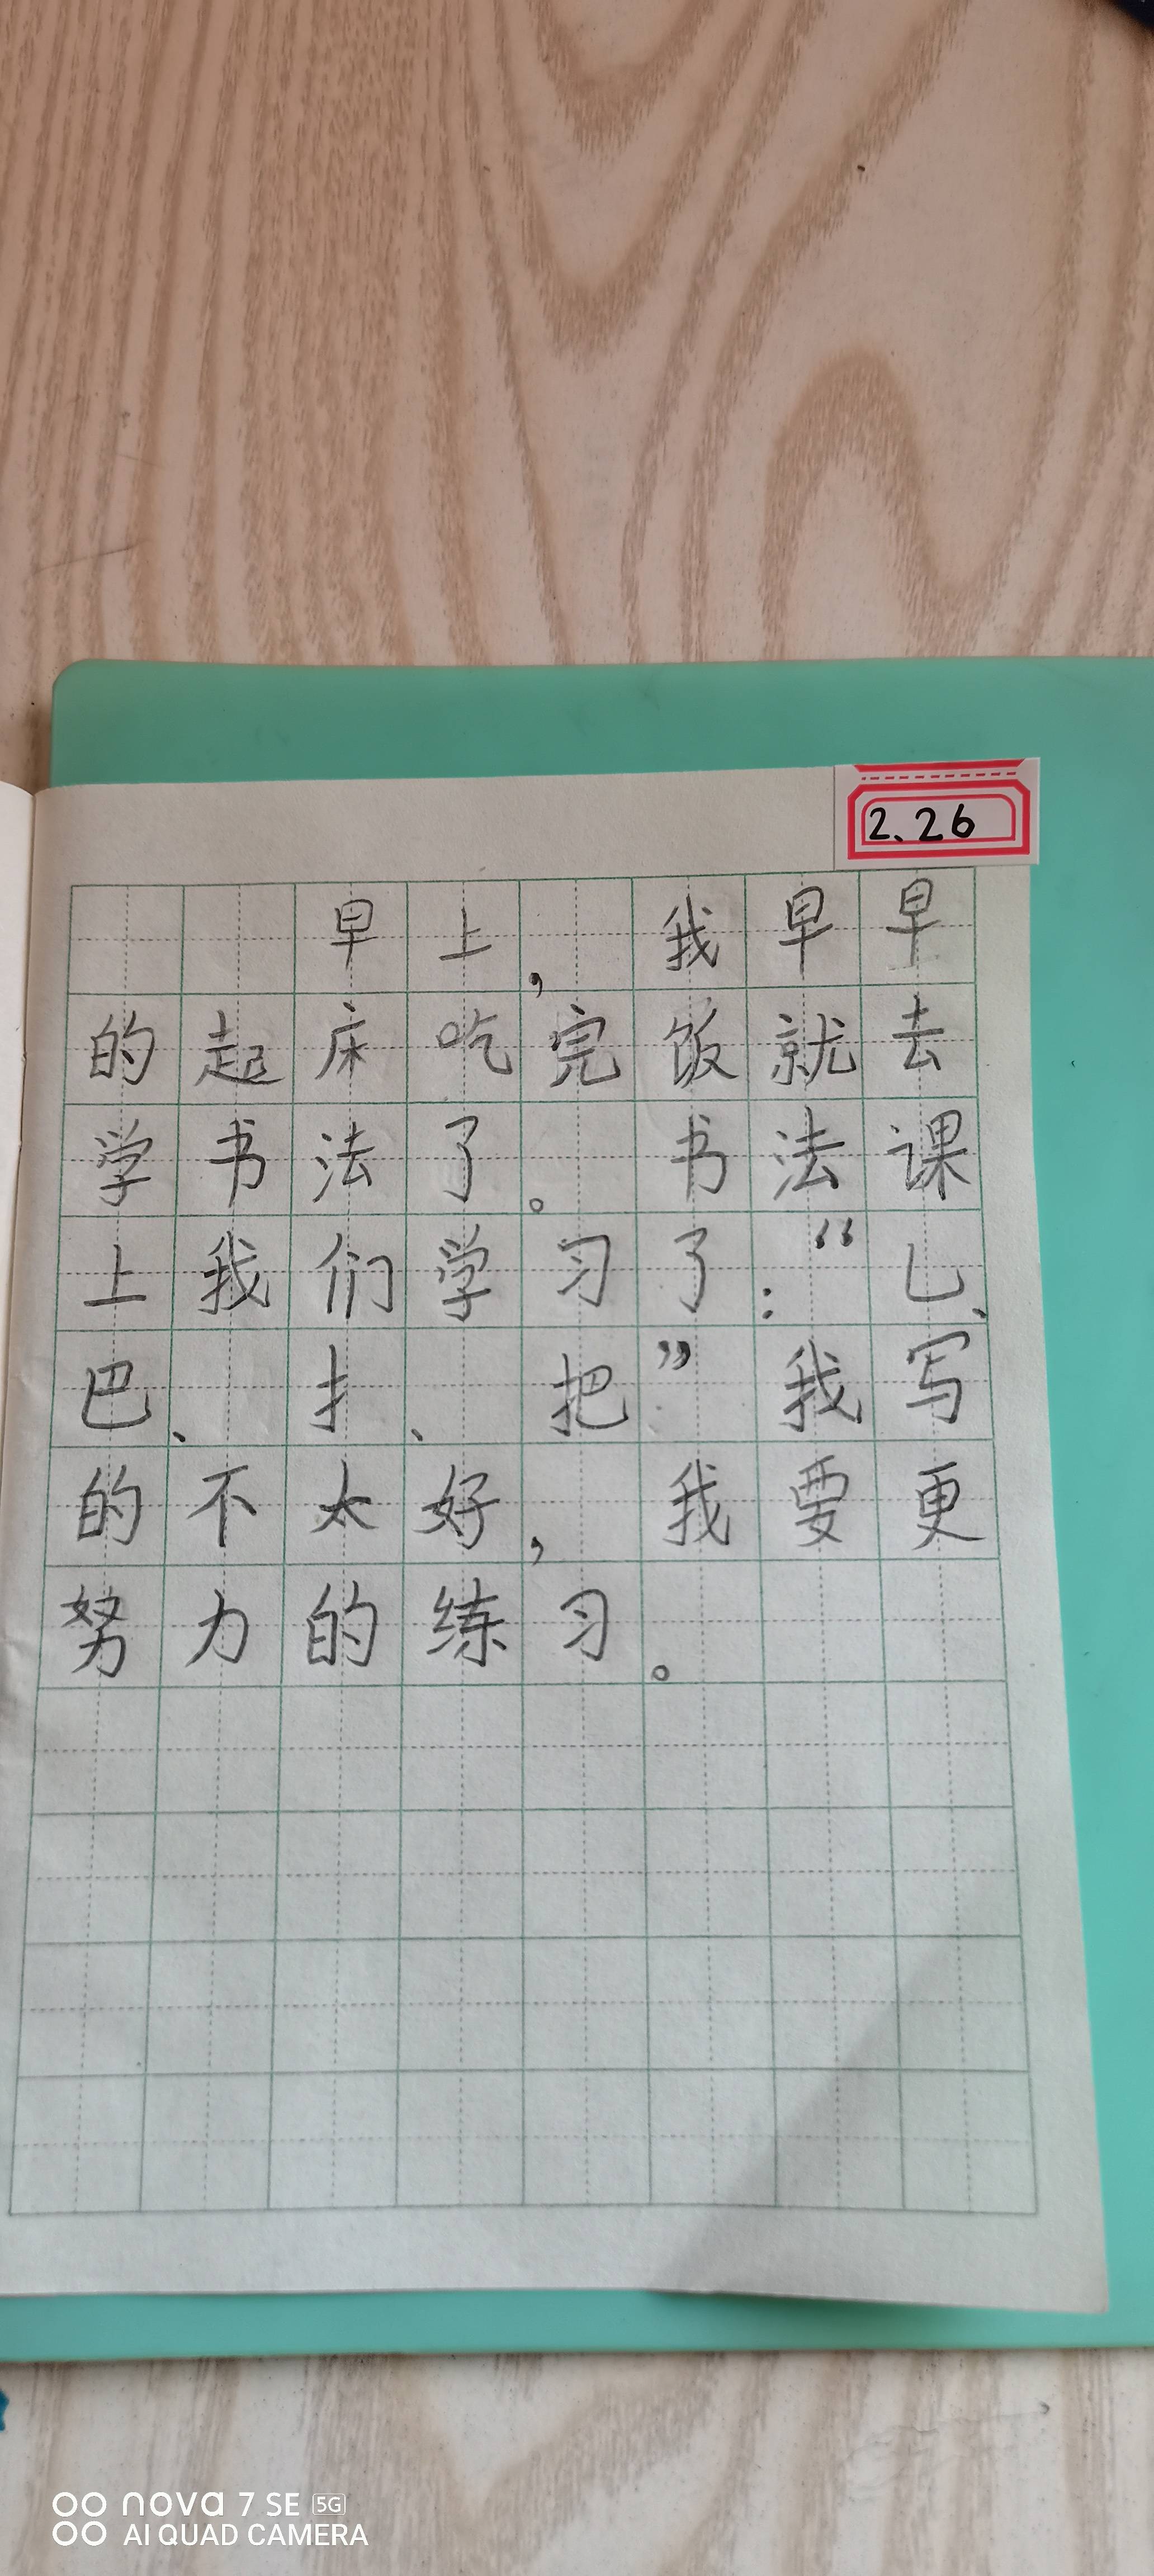 2.26
早上，我早早
的起床吃完饭就去
学书法了。书法课
上我们学习了：“乚、
巴、扌、把”我写
的不太好，我要更
努力的练习。
nova 7 SE 5G
AI QUAD CAMERA